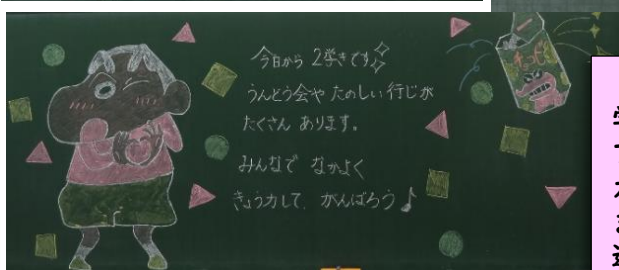 今日から 2学きです
うんどう会や たのしい 行じが
たくさん あります。
みんなで なかよく
きょう力して、がんばろう♪
チョコビ